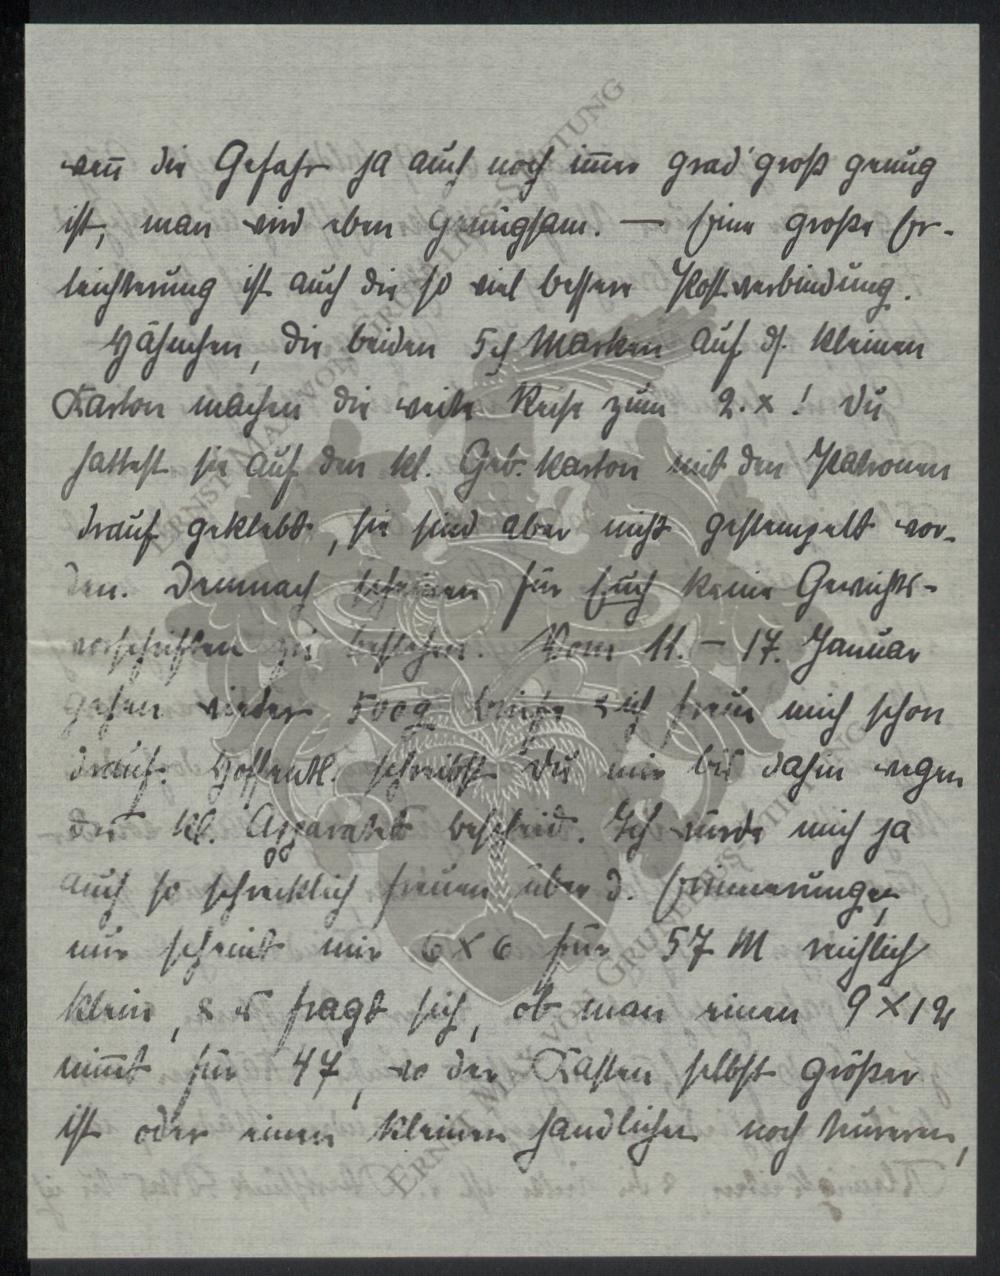 wen̄ die Gefahr ja auch noch im̄er grad' groß genug
ist, man wird eben genügsam. — Eine große Er-
leichterung ist auch die so viel bessere Postverbindung.
Hähnchen, die beiden 5 Marken auf d. kleinen
Karton machen die weite Reise zum 2. x ! Du
hattest sie auf den kl. Geb. Karton mit den Patronen
drauf geklebt, sie sind aber nicht gestempelt wor-
den. Demnach scheinen für Euch keine Gewichts-
vorschriften zu bestehen. Vom 11. – 17. Januar
gehen wieder 500g Briefe & ich freue mich schon
drauf. Hoffentl. schreibst Du mir bis dahin wegen
des kl. Apparates bescheid. Ich würde mich ja
auch so schrecklich freuen über d. Erinnerungen,
nur scheint mir 6 X 6 für 57 M reichlich
klein, & es fragt sich, ob man einen 9 X 12
nim̄t für 47, wo der Kasten selbst größer
ist oder einen kleinen handlichen noch teureren,
ERNST MAX VON GRUNELIUS-STIFTUNG
ERNST MAX VON GRUNELIUS-STIFTUNG